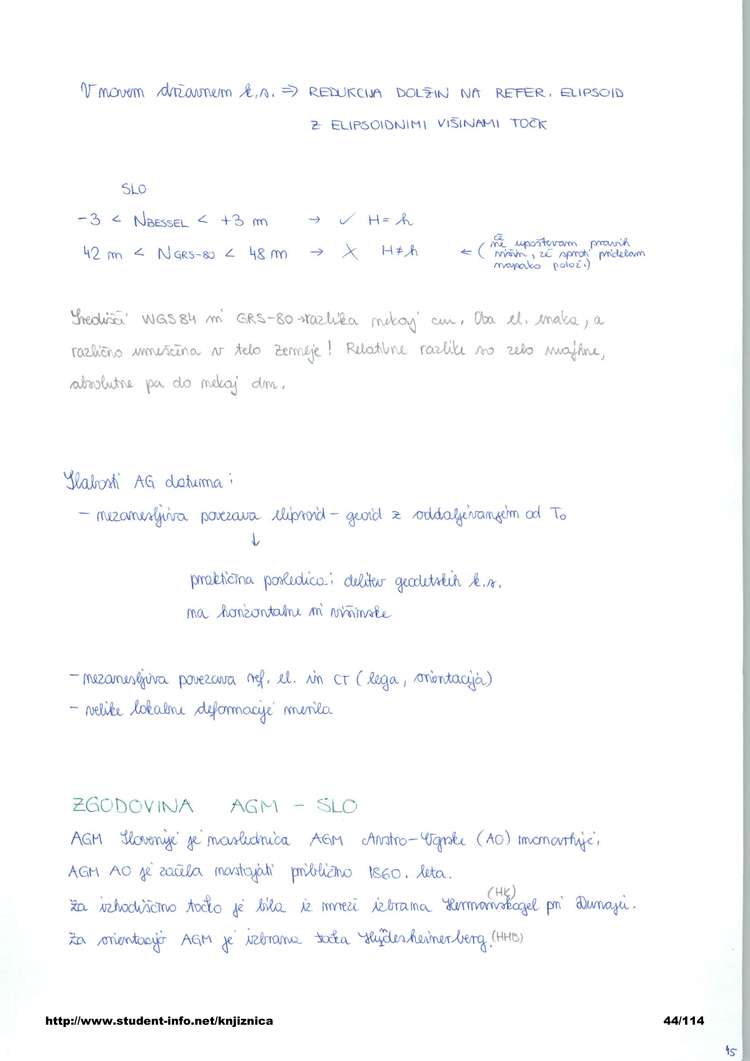 V novem državnem k.s. ⇒ REDUKCIJA DOLŽIN NA REFER. ELIPSOID
Z ELIPSOIDNIMI VIŠINAMI TOČK
SLO
-3 < NBESSEL < +3 m → ✓ H = h
42 m < NGRS-80 < 48 m → X H ≠ h ← (če ne upoštevam pravih
višin, že sproti pridelam
napako položi.)
Središči WGS84 in GRS-80 → razlika nekaj cm. Oba el. enaka, a
različno umeščena v telo Zemlje! Relativne razlike so zelo majhne,
absolutne pa do nekaj dm.
Slabosti AG datuma:
- nezanesljiva povezava elipsoid - geoid z oddaljevanjem od To
↓
praktična posledica: delitev geodetskih k.s.
na horizontalne in višinske
- nezanesljiva povezava ref. el. in CT (lega, orientacija)
- velike lokalne deformacije merila
ZGODOVINA AGM - SLO
AGM Slovenije je naslednica AGM Avstro-Ogrske (AO) monarhije.
AGM AO je začela nastajati približno 1860. leta.
Za izhodiščno točko je bila iz mreže izbrana Hermannskogel (HK) pri Dunaju.
Za orientacijo AGM je izbrana točka (HHB)
http://www.student-info.net/knjiznica
44/114
45